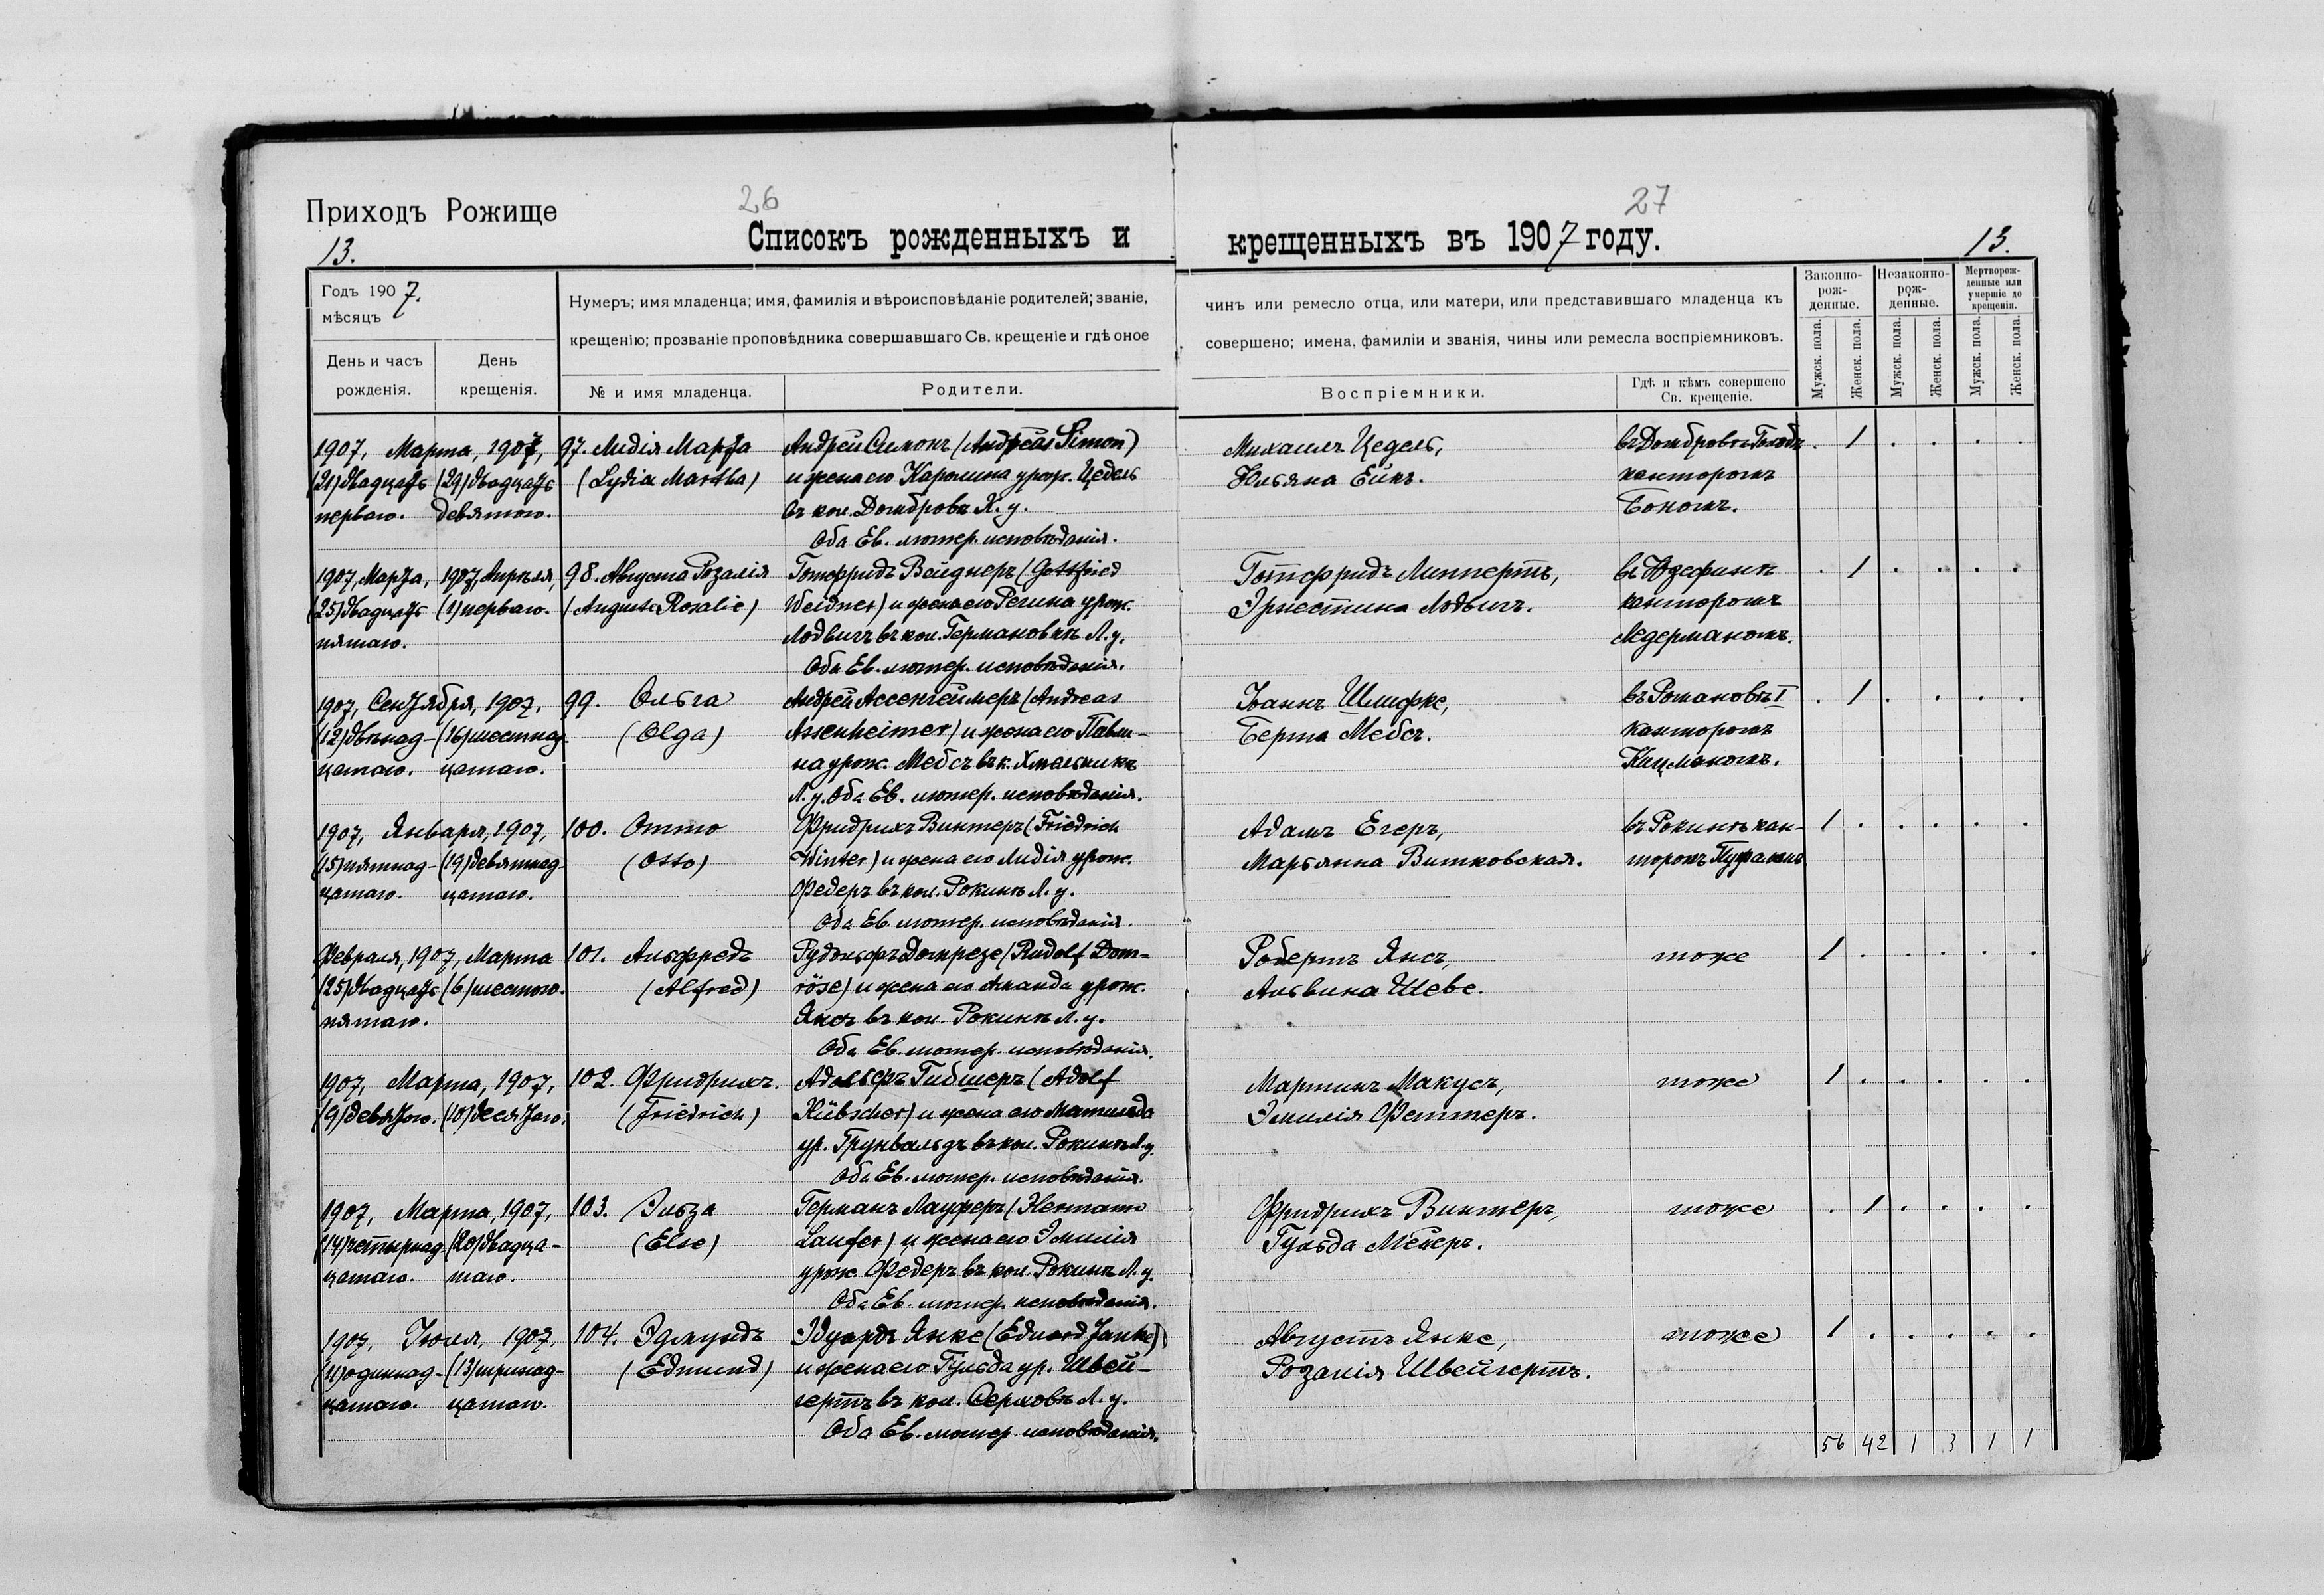 26
27
Приходъ Рожище
13.
Списокъ рожденныхъ и крещенныхъ въ 1907 году.
13.
Годъ 1907.
мѣсяцъ
День и часъ рожденія.
День крещенія.
Нумеръ; имя младенца; имя, фамилія и вѣроисповѣданіе родителей; званіе,
чинъ или ремесло отца, или матери, или представившаго младенца къ
крещенію; прозваніе проповѣдника совершавшаго Св. крещеніе и гдѣ оное
совершено; имена, фамиліи и званія, чины или ремесла воспріемниковъ.
№ и имя младенца.
Родители.
Воспріемники.
Гдѣ и кѣмъ совершено Св. крещеніе.
Законно-рож-денные.
Незаконно-рож-денные.
Мертворож-денные или умершіе до крещенія.
Мужск. пола. Женск. пола. Мужск. пола. Женск. пола. Мужск. пола. Женск. пола.
1907, Марта, 1907, 97. Лидія Марта Андрей Симонъ (Andreas Simon) Михаилъ Цедель, 1
(21) двадцать (29) двадцать (Lydia Martha) и жена его Каролина урож. Цедель Юльяна Ейкъ. канторомъ
перваго. девятаго. въ кол. Домброва Бономъ.
Оба Ев. лютер. исповѣданія.
1907, Марта, 1907, Апрѣля, 98. Августа Розалія Готфридъ Вейднеръ (Gottfried Готфридъ Липпертъ, въ Юзефинѣ 1
(25) двадцать (1) перваго. (Auguste Rosalie) Weidner) и жена его Регина урож. Эрнестина Лодвигъ. канторомъ
пятаго. Лодвигъ въ кол. Германовкѣ Л. у. Ледерманомъ.
Оба Ев. лютер. исповѣданія.
1907, Сентября, 1907, 99. Ольга Андрей Ассенгеймеръ (Andreas Іоаннъ Шлифке, въ Романовѣ I 1
(12) двѣнад- (16) шестнад- (Olga) Assenheimer) и жена его Павли- Берта Мебсъ. канторомъ
цатаго. цатаго. на урож. Мебсъ въ к. Хмельникѣ Кицманомъ.
Л. у. Оба Ев. лютер. исповѣданія.
1907, Января, 1907, 100. Отто Фридрихъ Винтеръ (Friedrich Адамъ Егеръ, въ Рокинѣ кан- 1
(15) пятнад- (19) девятнад- (Otto) Winter) и жена его Лидія урож. Марьянна Витковская. торомъ
цатаго. цатаго. Федеръ въ кол. Рокинѣ Л. у.
Оба Ев. лютер. исповѣданія.
Февраля, 1907, Марта 101. Альфредъ Рудольфъ Домрезе (Rudolf Dom- Робертъ Янсъ, тоже 1
(25) двадцать (6) шестого. (Alfred) röse) и жена его Аманда урож. Альвина Шеве.
пятаго. Янсъ въ кол. Рокинѣ Л. у.
Оба Ев. лютер. исповѣданія.
1907, Марта, 1907, 102. Фридрихъ. Адольфъ Гибшеръ (Adolf Мартинъ Макусъ, тоже 1
(9) девятого. (10) десятого. (Friedrich) Hübscher) и жена его Матильда Эмилія Феттеръ.
ур. Грунвальдъ въ кол. Рокинѣ Л. у.
Оба Ев. лютер. исповѣданія.
1907, Марта, 1907, 103. Эльза Германъ Лауферъ (Hermann Фридрихъ Винтеръ, тоже 1
(14) четырнад- (20) двадца- (Else) Laufer) и жена его Эмилія Гульда Мееръ.
цатаго. таго. урож. Федеръ въ кол. Рокинѣ Л. у.
Оба Ев. лютер. исповѣданія.
1907, Іюля, 1907, 104. Эдмундъ Эдуардъ Янке (Eduard Janke) Августъ Янке, тоже 1
(11) одиннад- (13) тринад- (Edmund) и жена его Гульда ур. Швей- Розалія Швейгертъ.
цатаго. цатаго. гертъ въ кол. Серховѣ Л. у.
Оба Ев. лютер. исповѣданія.
56 42 1 3 1 1